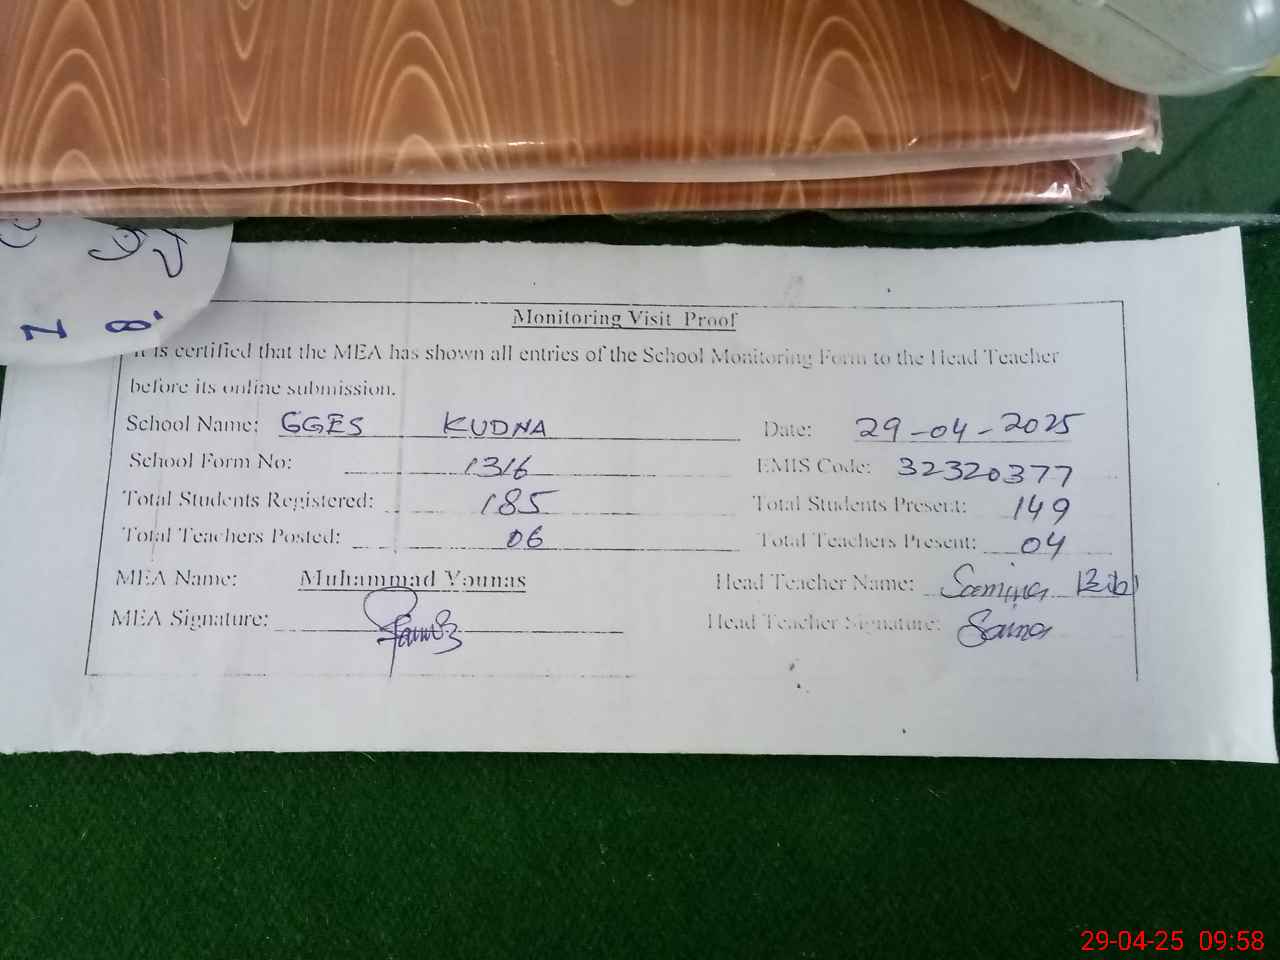 Monitoring Visit Proof
It is certified that the MEA has shown all entries of the School Monitoring Form to the Head Teacher
before its online submission.
School Name: GGES KUDNA Date: 29-04-2025
School Form No: 1316 EMIS Code: 32320377
Total Students Registered: 185 Total Students Present: 149
Total Teachers Posted: 06 Total Teachers Present: 04
MEA Name: Muhammad Younas Head Teacher Name: Samina Bibi
MEA Signature: Head Teacher Signature:
29-04-25 09:58